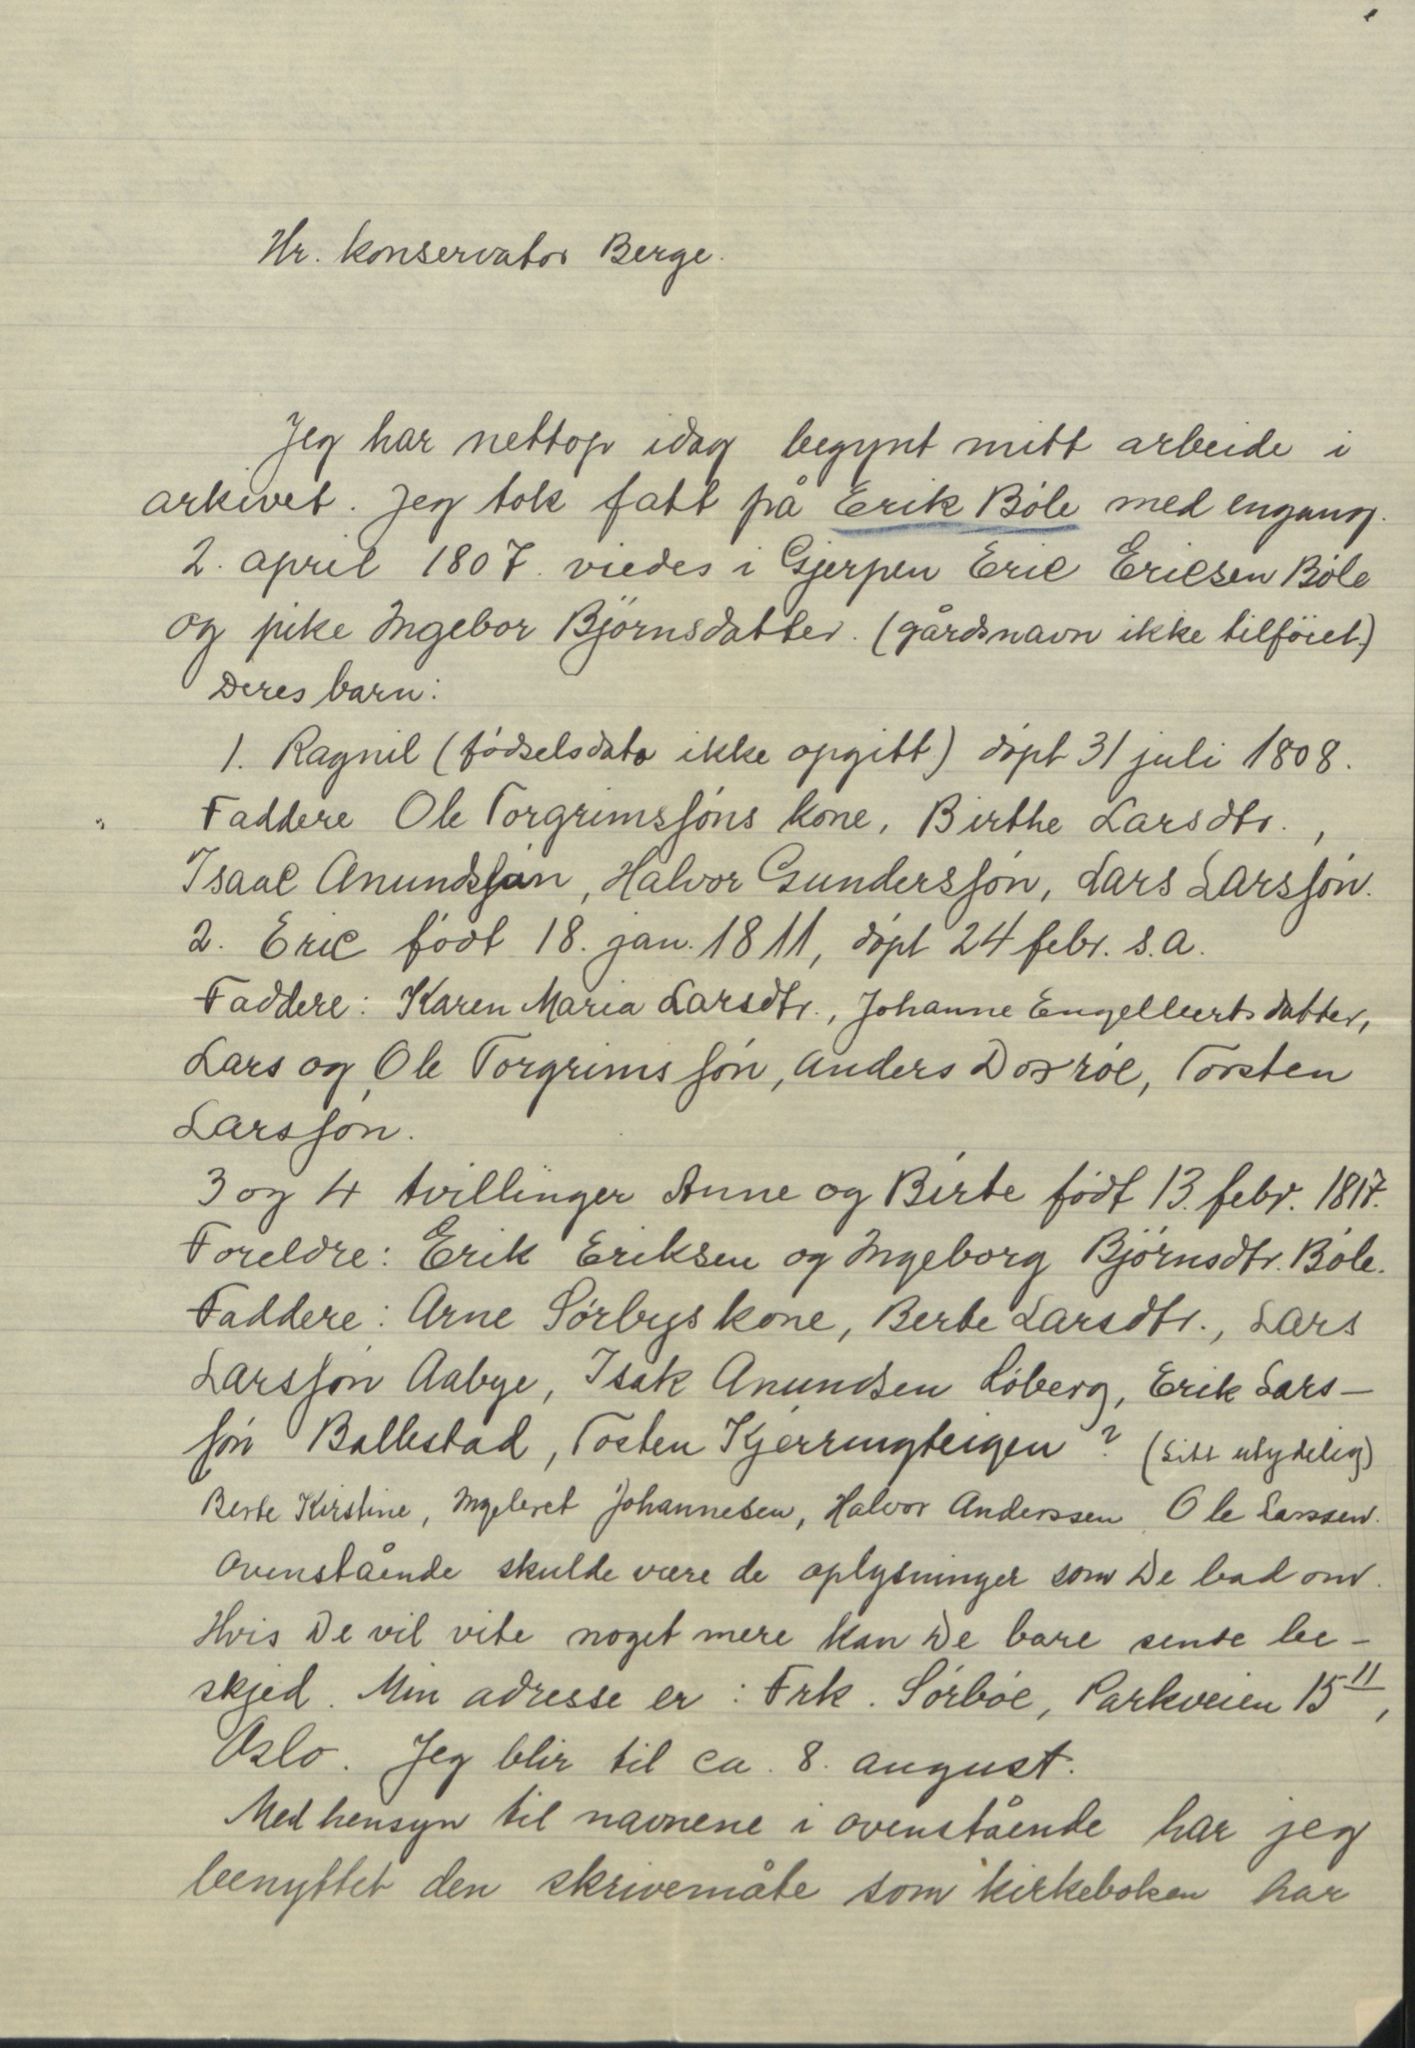 Hr. konservator Berge.
Jeg har nettop idag begynt mitt arbeide i
arkivet. Jeg tok fatt på Erik Bøle med engang.
2. april 1807. viedes i Gjerpen Eric Ericsen Bøle
og pike Ingebor Björnsdatter. (gårdsnavn ikke tilföiet.)
Deres barn:
1. Ragnil (fødselsdato ikke opgitt) døpt 31 juli 1808.
Faddere Ole Torgrimssøns kone, Birthe Larsdtr.,
Isaac Anundssøn, Halvor Gunderssøn, Lars Larssøn.
2. Eric født 18. jan. 1811, døpt 24 febr. s.a.
Faddere: Karen Maria Larsdtr., Johanne Engelbertsdatter,
Lars og Ole Torgrimssøn, Anders Torsten
Larssøn.
3 og 4 tvillinger Anne og Birte født 13. febr. 1817.
Foreldre: Erik Eriksen og Ingeborg Bjørnsdtr. Bøle.
Faddere: Arne Sørbys kone, Berte Larsdtr., Lars
Larssøn Aabye, Isak Anundsen Løberg, Erik Lars-
søn Ballestad, Tosten Kjerringteigen? (Litt utydelig)
Berte Kirstine, Ingebret Johannesen, Halvor Anderssen Ole Larssen.
Ovenstående skulde være de oplysninger som De bad om.
Hvis De vil vite noget mere kan De bare sende be-
skjed. Min adresse er: Frk. Sørbøe, Parkveien 15 II,
Oslo. Jeg blir til ca. 8. august.
Med hensyn til navnene i ovenstående har jeg
benyttet den skrivemåte som kirkeboken har